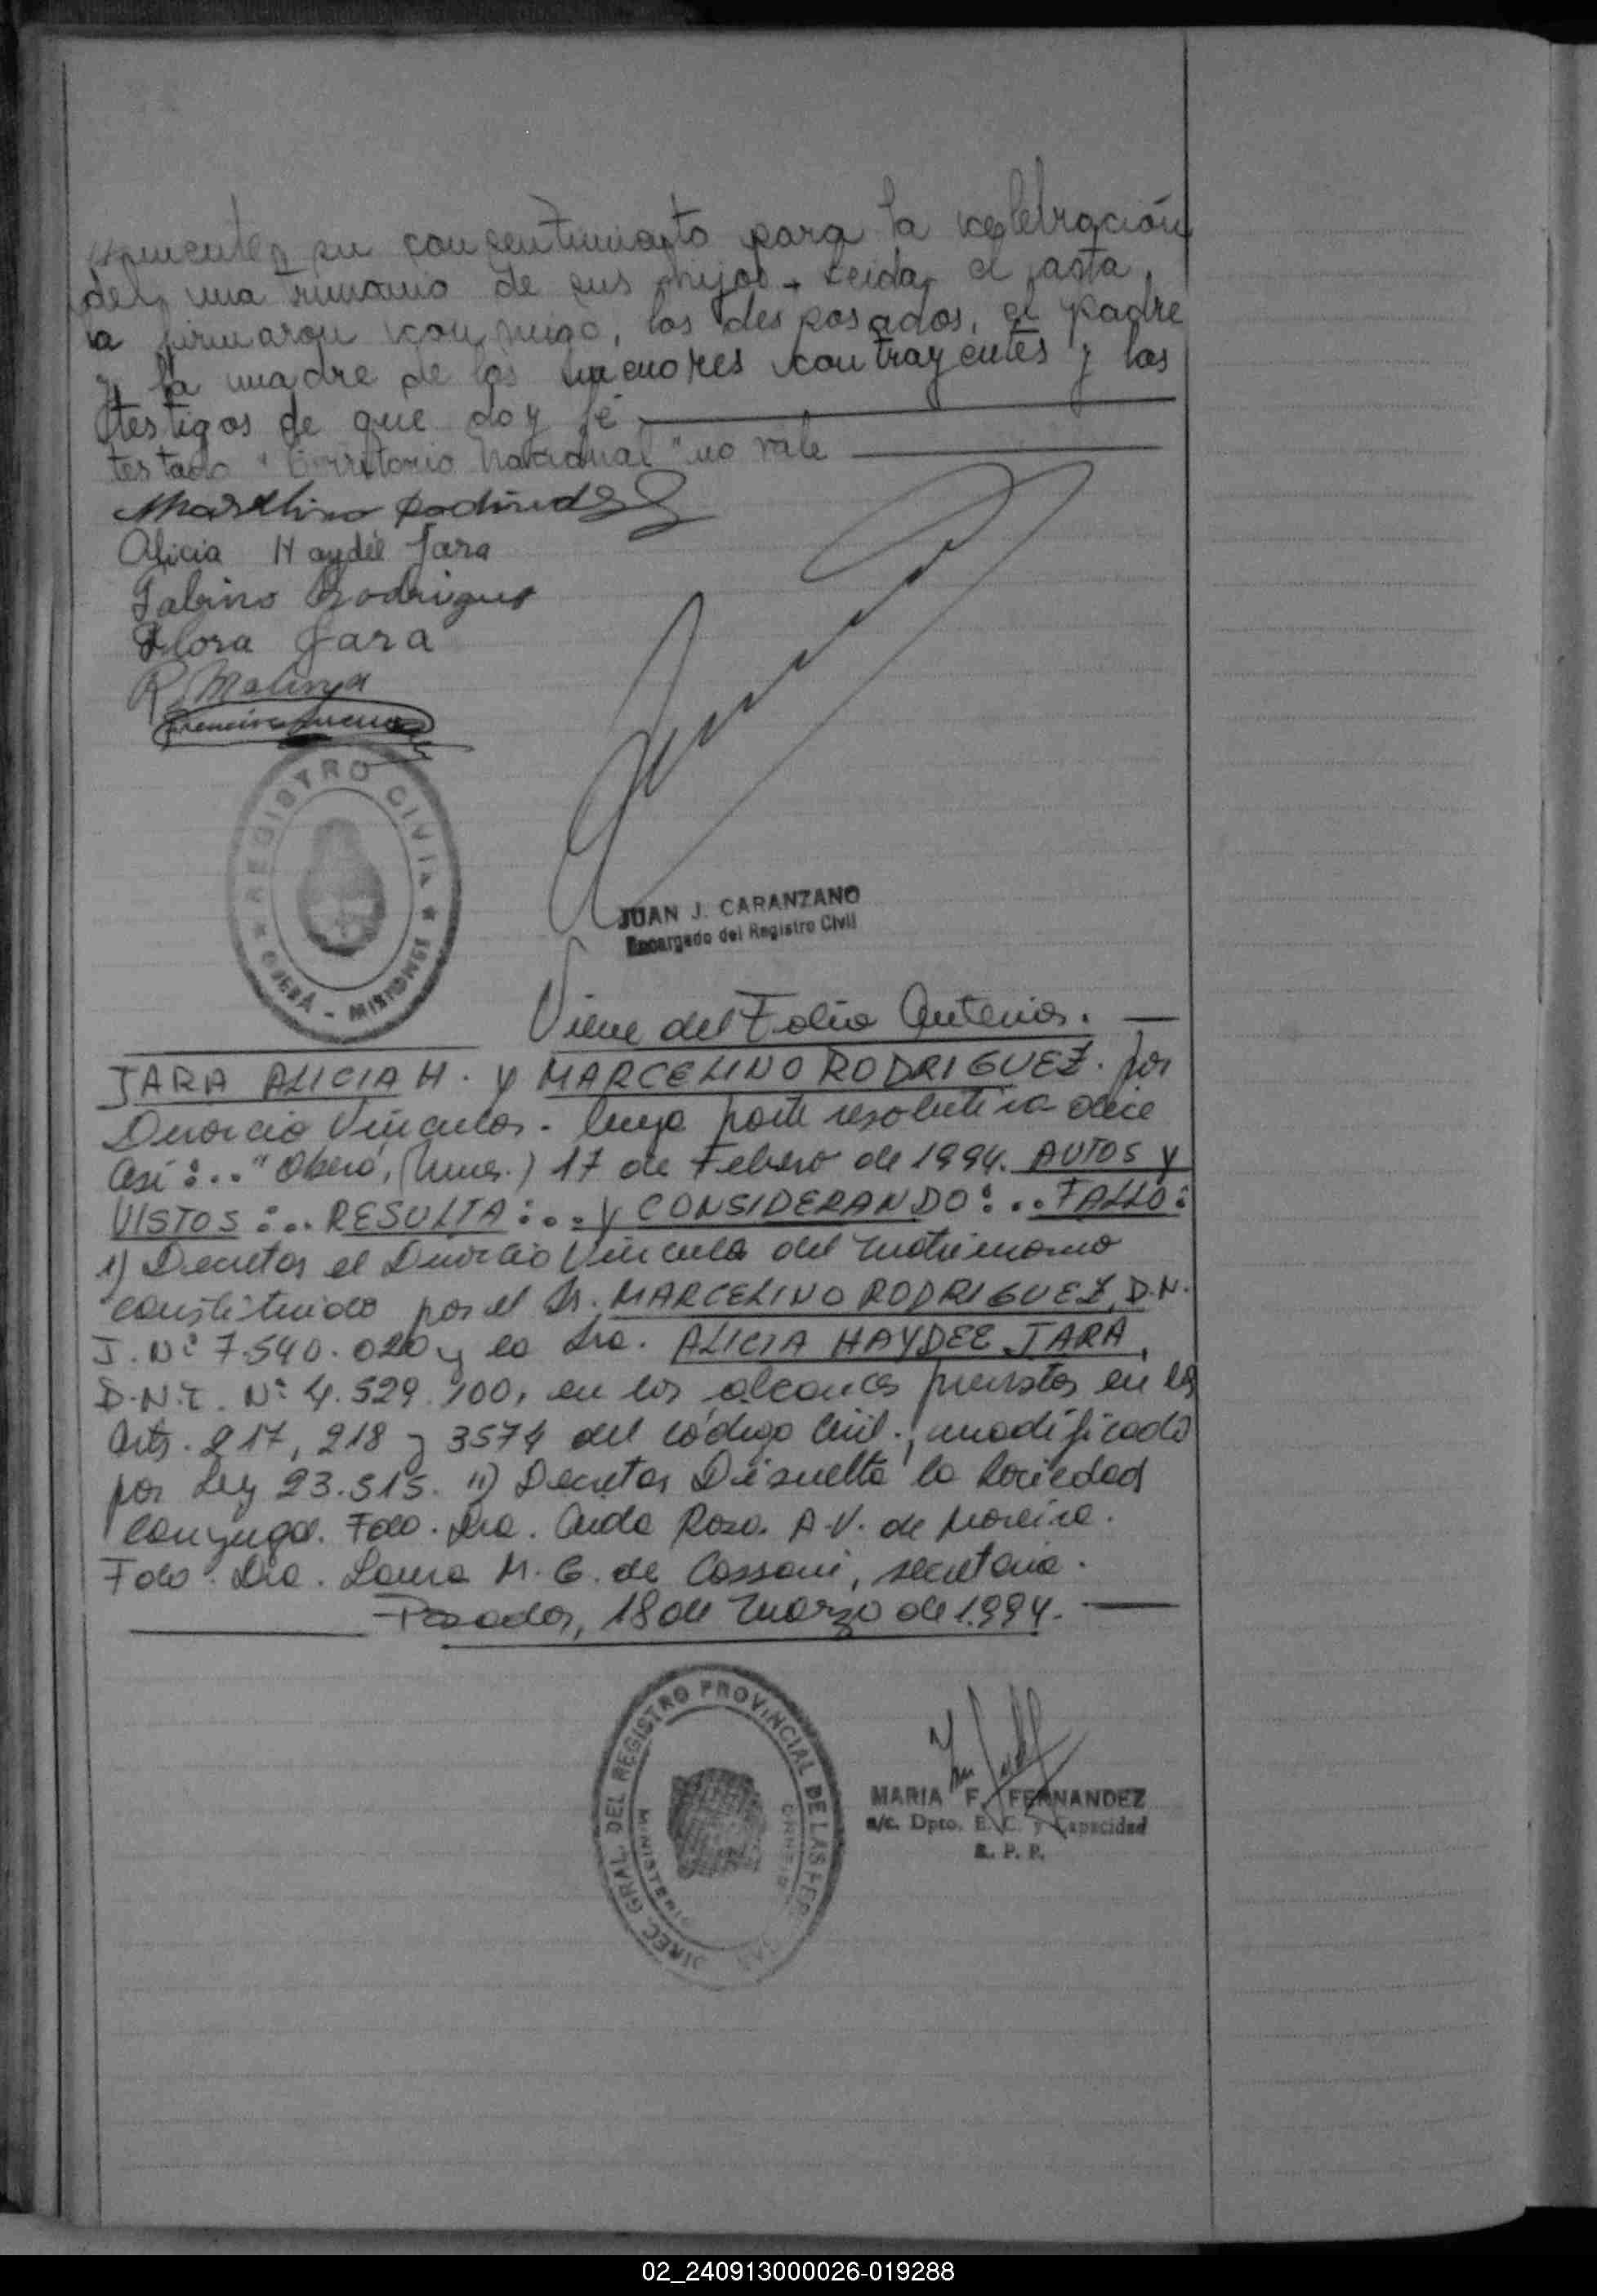 su consentimiento para la celebración
del matrimonio de sus hijos. Leida el acta,
la firmaron conmigo, los desposados, el padre
y la madre de los menores contrayentes y los
testigos de que doy fé
testado "Territorio Nacional" no vale
Marselino Rodriguez
Alicia Haydée Jara
Sabino Rodriguez
Flora Jara
R. Molinga
REGISTRO CIVIL
OBERÁ - MISIONES
JUAN J. CARANZANO
Encargado del Registro Civil
Viene del Folio Anterior.
JARA ALICIA H. y MARCELINO RODRIGUEZ. por
Divorcio Vincular. Cuya parte resolutiva dice
así:.. "Oberá, (Mnes.) 17 de Febrero de 1994. AUTOS y
VISTOS:.. RESULTA:.. y CONSIDERANDO:.. FALLO:
1) Decretar el Divorcio Vincular del Matrimonio
constituido por el Sr. MARCELINO RODRIGUEZ, D.N.
I. Nº 7.540.020 y la Sra. ALICIA HAYDEE JARA,
D.N.I. Nº 4.529.100, en los alcances previstos en los
Arts. 217, 218 y 3574 del código Civil, modificado
por Ley 23.515. 11) Decretar Disuelta la Sociedad
Conyugal. Fdo. Dra. Aida Rosa A.V. de Moreira.
Fdo. Dra. Laura M. G. de Cassoni, secretaria.
Posadas, 18 de Marzo de 1.994.
DIREC. GRAL. DEL REGISTRO PROVINCIAL DE LAS PERSONAS
MINISTERIO
MARIA F. FERNANDEZ
a/c. Dpto. E. C. y Capacidad
R. P. P.
02_240913000026-019288